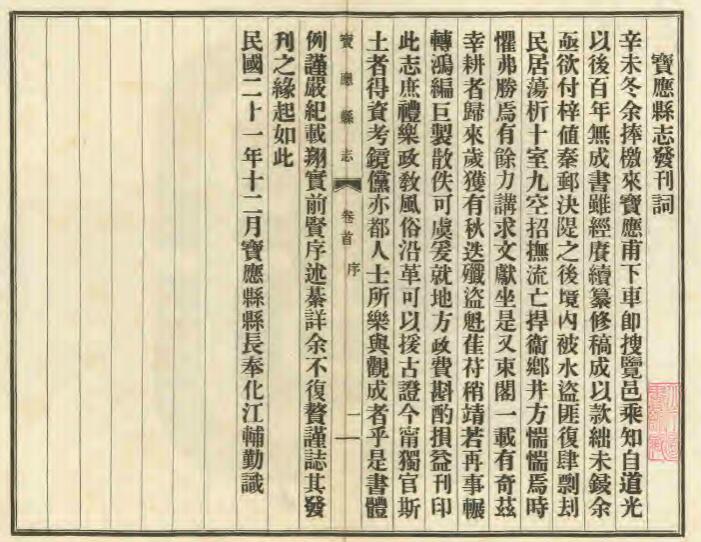 寶應縣志發刊詞
辛未冬余捧檄來寶應甫下車卽搜覽邑乘知自道光
以後百年無成書雖經賡續纂修稿成以款絀未鋟余
亟欲付梓値秦郵決隄之後境內被水盜匪復肆剽刦
民居蕩析十室九空招撫流亡捍衞鄉井方惴惴焉時
懼弗勝焉有餘力講求文獻坐是又束閣一載有奇茲
幸耕者歸來歲獲有秋迭殲盜魁萑苻稍靖若再事輾
轉鴻編巨製散佚可虞爰就地方政費斟酌損益刊印
此志庶禮樂政敎風俗沿革可以援古證今甯獨官斯
土者得資考鏡儻亦都人士所樂與觀成者乎是書體
寶應縣志 卷首 序 一
例謹嚴紀載翔實前賢序述綦詳余不復贅謹誌其發
刊之緣起如此
民國二十一年十二月寶應縣縣長奉化江輔勤識